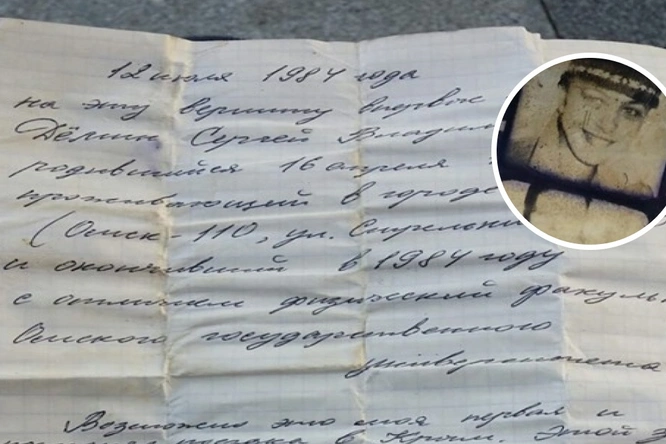 12 июля 1984 года
на эту вершину впервые
Дёмин Сергей Владим
родившийся 16 апреля
проживающей в городе
(Омск-110, ул.
и окончивший в 1984 году
с отличием физический факуль
Омского государственного
университета
Возможно это моя первая и
поездка в Крым. Этой